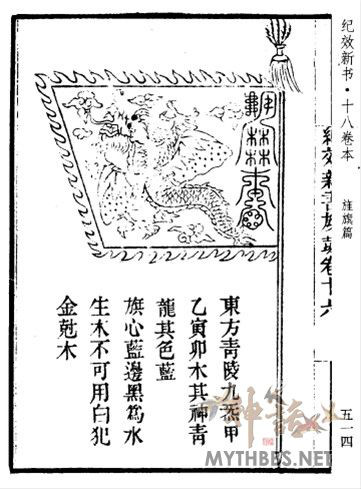 纪效新书·十八卷本
旌旗篇
五一四
東方青陵九炁甲
乙寅卯木其神青
龍其色藍
旗心藍邊黑爲水
生木不可用白犯
金尅木
MYTHBBS.NET